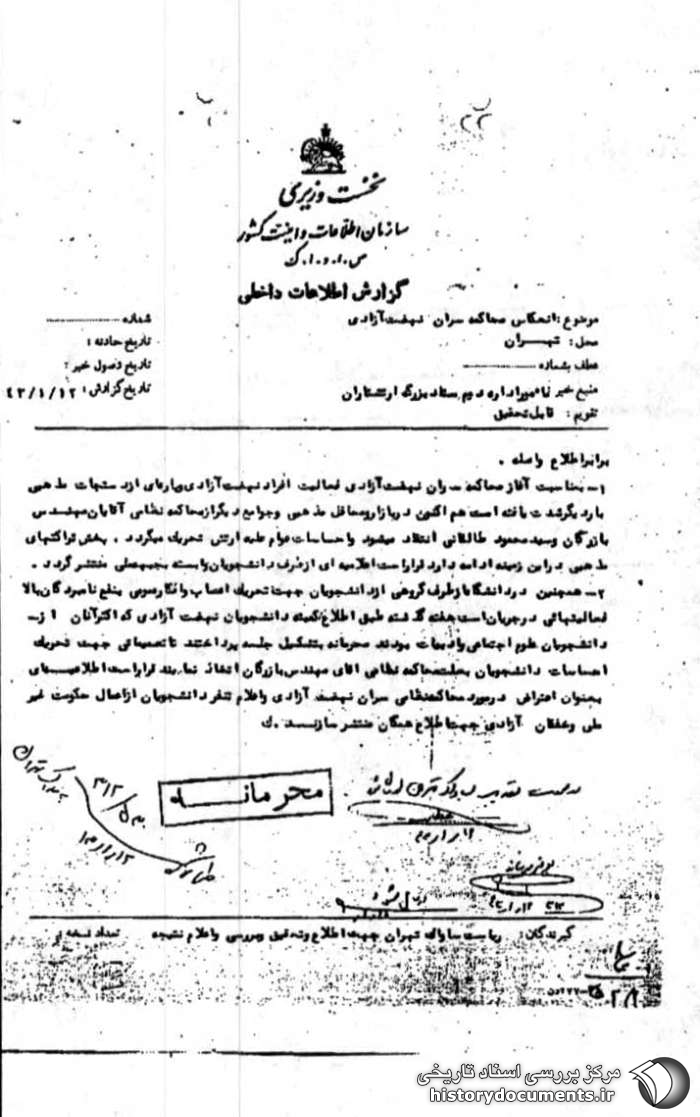 نخست وزیری
سازمان اطلاعات و امنیت کشور
س.ا.و.ا.ک
گزارش اطلاعات داخلی
موضوع : انعکاس محاکمه سران نهضت آزادی
شماره
محل : تهران
تاریخ حادثه :
عطف بشماره
تاریخ وصول خبر :
منبع خبر نامه اداره دوم ستاد بزرگ ارتشتاران
تاریخ گزارش : ۴۳/۱/۱۲
تقویم : قابل تحقیق
برابر اطلاع واصله .
۱- بمناسبت آغاز محاکمه سران نهضت آزادی فعالیت افراد نهضت آزادی و پاره‌ای از دستجات مذهبی
بار دیگر شدت یافته است هم اکنون در بازار و محافل مذهبی و جوامع دیگر از محاکمه نظامی آقایان مهندس
بازرگان و سید محمود طالقانی انتقاد میشود و احساسات عوام علیه ارتش تحریک میگردد . پخش تراکتهای
مذهبی در این زمینه ادامه دارد قرار است اعلامیه ای از طرف دانشجویان وابسته بجبهه ملی منتشر گردد .
۲- همچنین در دانشگاه از طرف گروهی از دانشجویان جهت تحریک اعصاب و افکار عمومی بنفع نامبردگان بالا
فعالیتهائی در جریان است هفته گذشته طبق اطلاع کمیته دانشجویان نهضت آزادی که اکثر آنان از
دانشجویان علوم اجتماعی و ادبیات بودند محرمانه بتشکیل جلسه پرداختند تا تصمیماتی جهت تحریک
احساسات دانشجویان بعلت محاکمه نظامی آقای مهندس بازرگان اتخاذ نمایند قرار است اطلاعیه‌های
بعنوان اعتراض در مورد محاکمه نظامی سران نهضت آزادی و اعلام تنفر دانشجویان از اعمال حکومت غیر
ملی و خفقان آزادی جهت اطلاع همگان منتشر سازند . ک
محرمانه
گیرندگان : ریاست ساواک تهران جهت اطلاع و تحقیق و بررسی و اعلام نتیجه
تعداد نسخه
مرکز بررسی اسناد تاریخی
historydocuments.ir